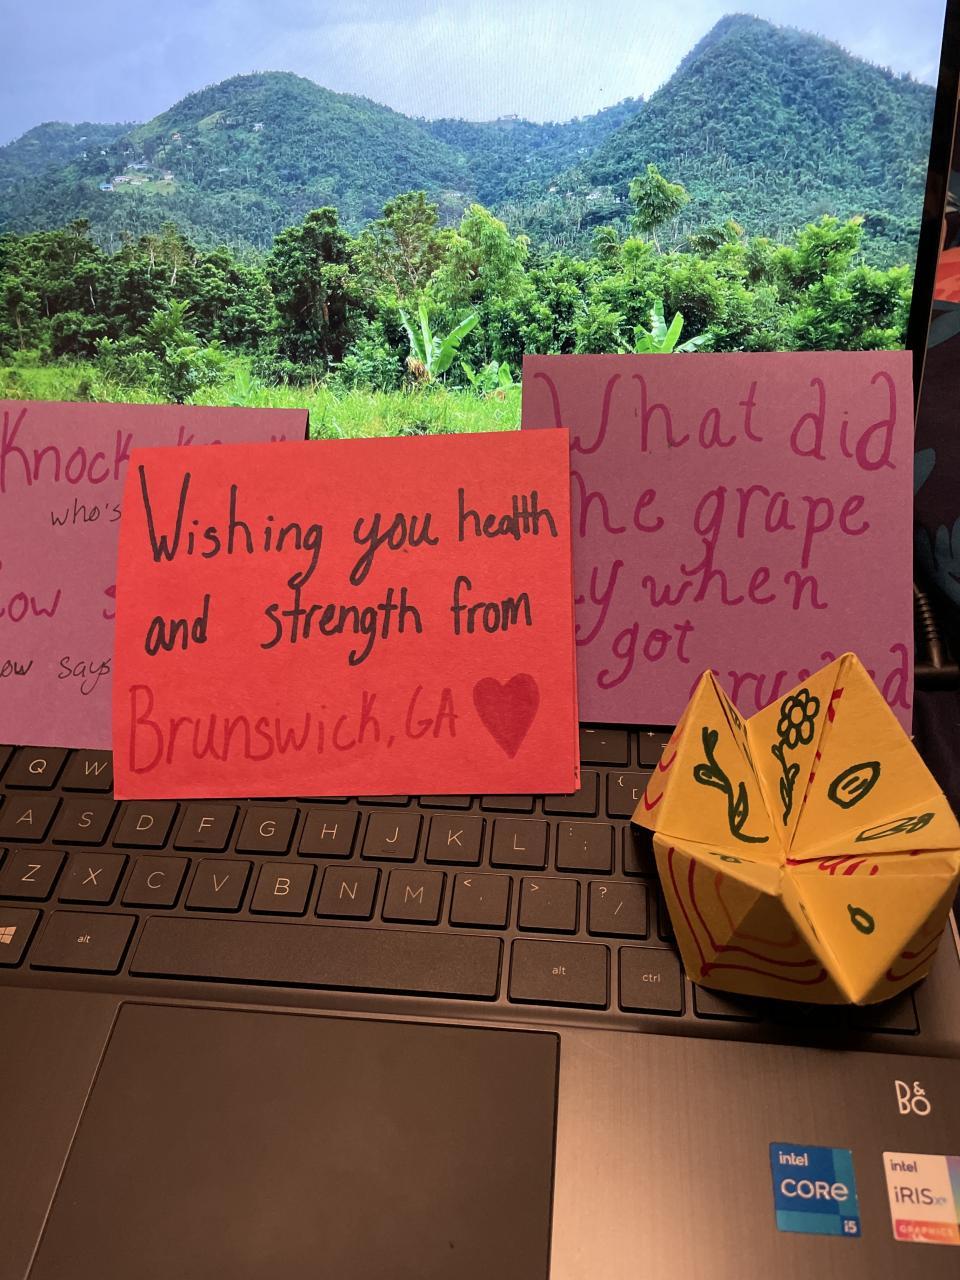 Knock
who's
ow s
ow says
Wishing you health
and strength from
Brunswick, GA
What did
he grape
y when
got
crushed
Q W
A S D F G H J K L : ;
Z X C V B N M < , > . ? /
alt alt ctrl
B&O
intel
CORE
i5
intel
iRIS xe
GRAPHICS